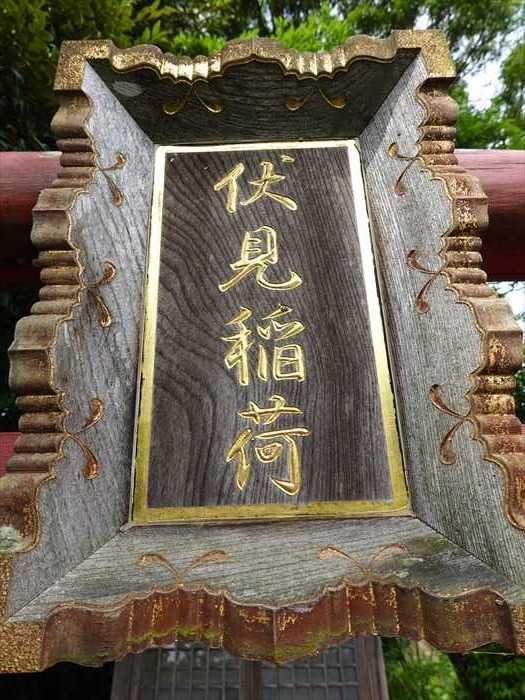 伏見稲荷